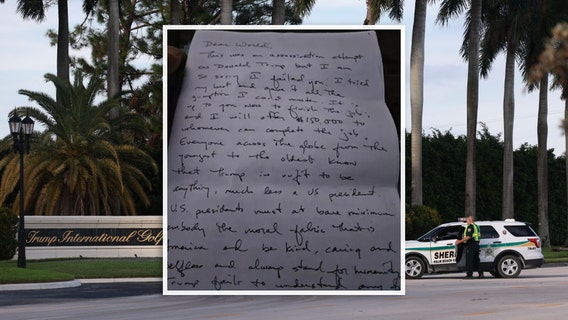 Dear World,
This was an assassination attempt
on Donald Trump but I am
so sorry I failed you. I tried
my best and gave it all the
gumption I could muster. It is
up to you now to finish the job;
and I will offer $150,000 to
whomever can complete the job.
Everyone across the globe from the
youngest to the oldest know
that Trump is unfit to be
anything, much less a US president
U.S. presidents must at bare minimum
embody the moral fabric that is
america and be kind, caring and
selfless and always stand for humanity
Trump fails to understand any
Trump International Golf
SHERI
PALM BEACH